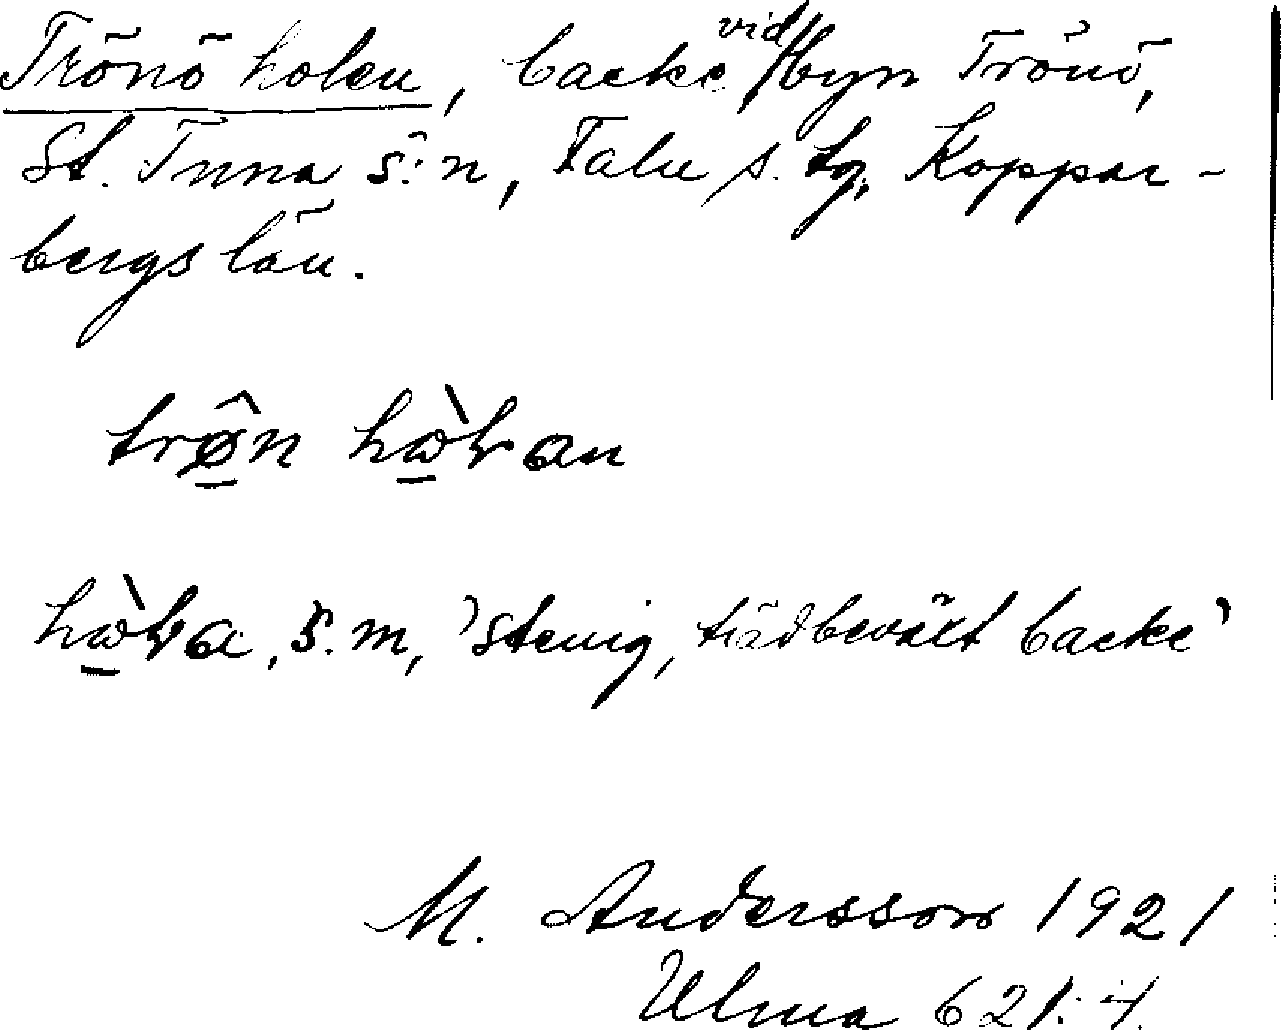 Trönö holen, backe vid byn Trönö,
St. Tuna s:n, Falu s. tg, Koppar-
bergs län.
trø̂n
s.m, 'stenig, trädbeväxt backe'
M. Andersson 1921
Ulma 621:4.